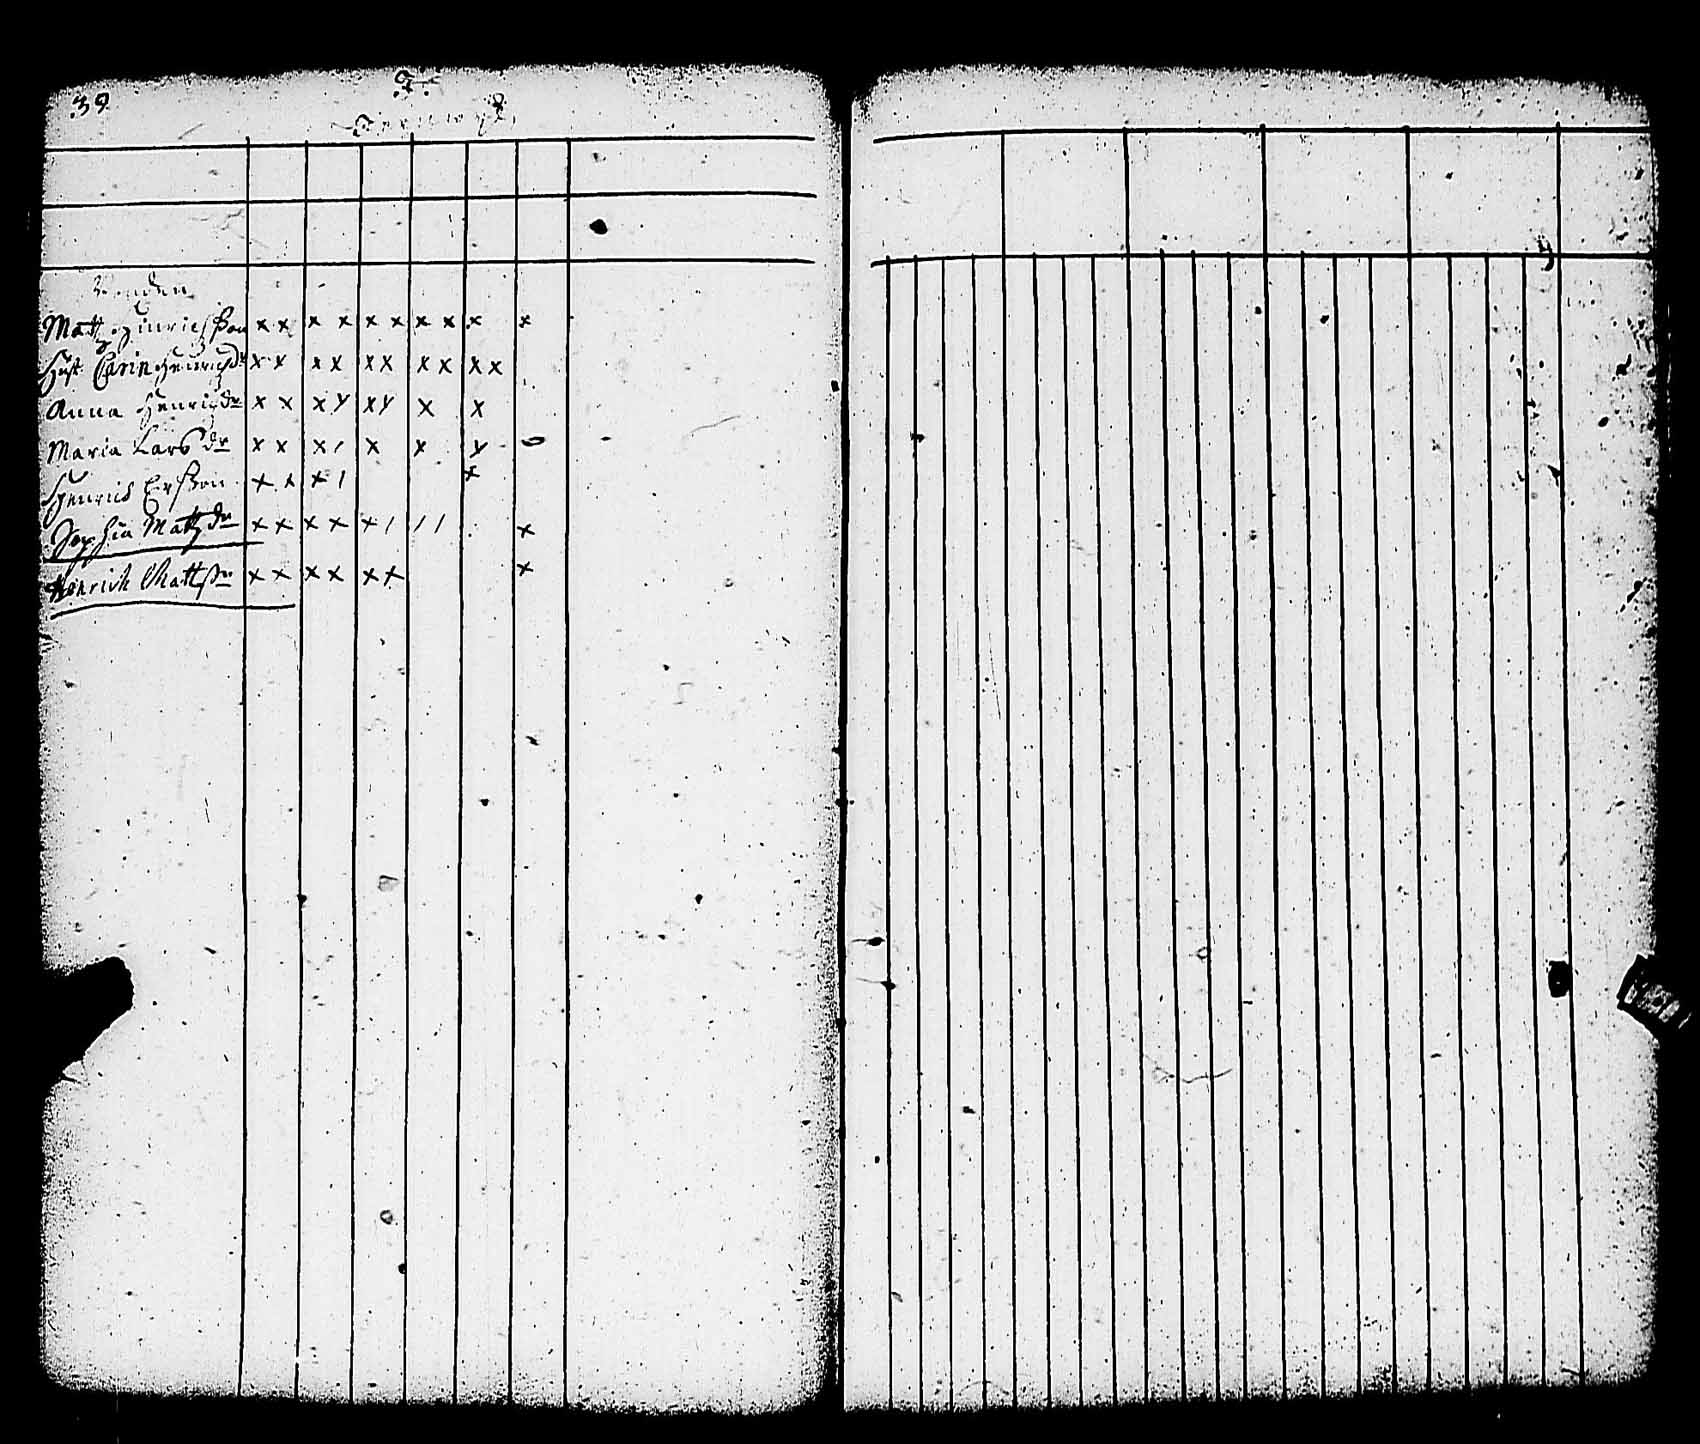 39
Matz Hinrichsson x x x x x x x x x x
Hust. Carin Henrichsdr x x x x x x x x x x
Anna Henrichdr x x x y x y x x
Maria Larsdr x x x / x x y
Henrich Ersson x x x / x
Sophia Matzdr x x x x x / / / x
Henrich Mattssn x x x x x x x